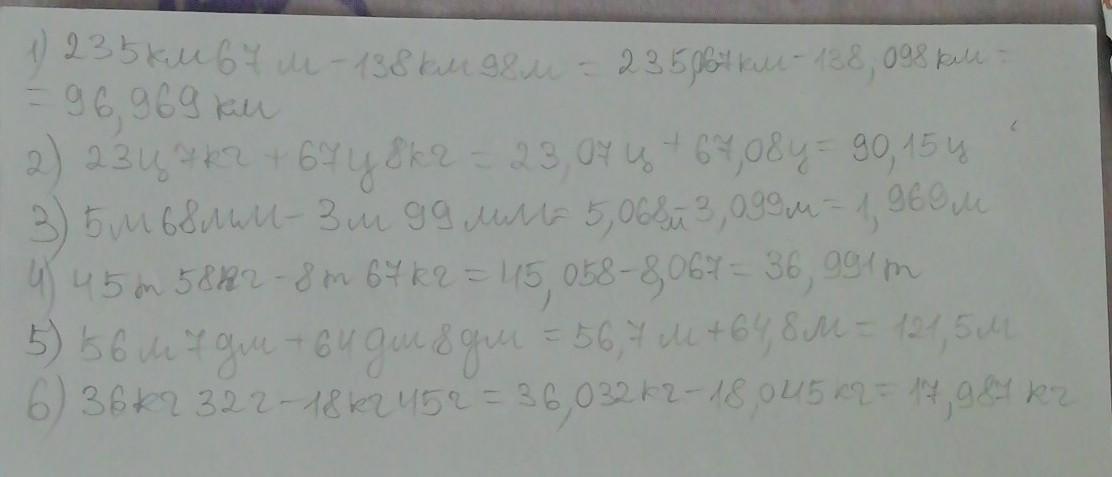 1) 235км 67м - 138км 98м = 235,067км - 138,098км =
= 96,969км
2) 23ц 7кг + 67ц 8кг = 23,07ц + 67,08ц = 90,15ц
3) 5м 68мм - 3м 99мм = 5,068м - 3,099м = 1,969м
4) 45т 58кг - 8т 67кг = 45,058 - 8,067 = 36,991т
5) 56м 7дм + 64дм 8дм = 56,7м + 64,8м = 121,5м
6) 36кг 32г - 18кг 45г = 36,032кг - 18,045кг = 17,987кг